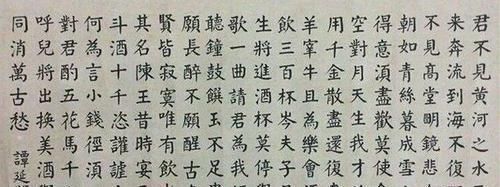 君不見黃河之水
来奔流到海不復
不見高堂明鏡悲
朝如青絲暮成雪
得意須盡歡莫使
空對月天生我才
用千金散盡還復
羊宰牛且為樂會
飲三百杯岑夫子
生將進酒杯莫停
歌一曲請君為我
聽鐘鼓饌玉不足
願長醉不願醒古
賢皆寂寞唯有飲
其名陳王昔時宴
斗酒十千恣讙謔
何為言小錢徑須
對君酌五花馬千
呼兒將出換美酒
同消萬古愁 譚延